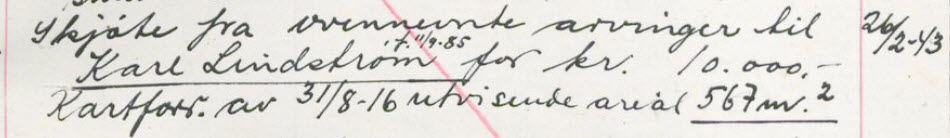 Skjöte fra ovennevnte arvinger til 26/2-43
f. 11/9-85
Karl Lindström for kr. 10.000,-
Kartforr. av 31/8-16 utvisende areal 567 m.²